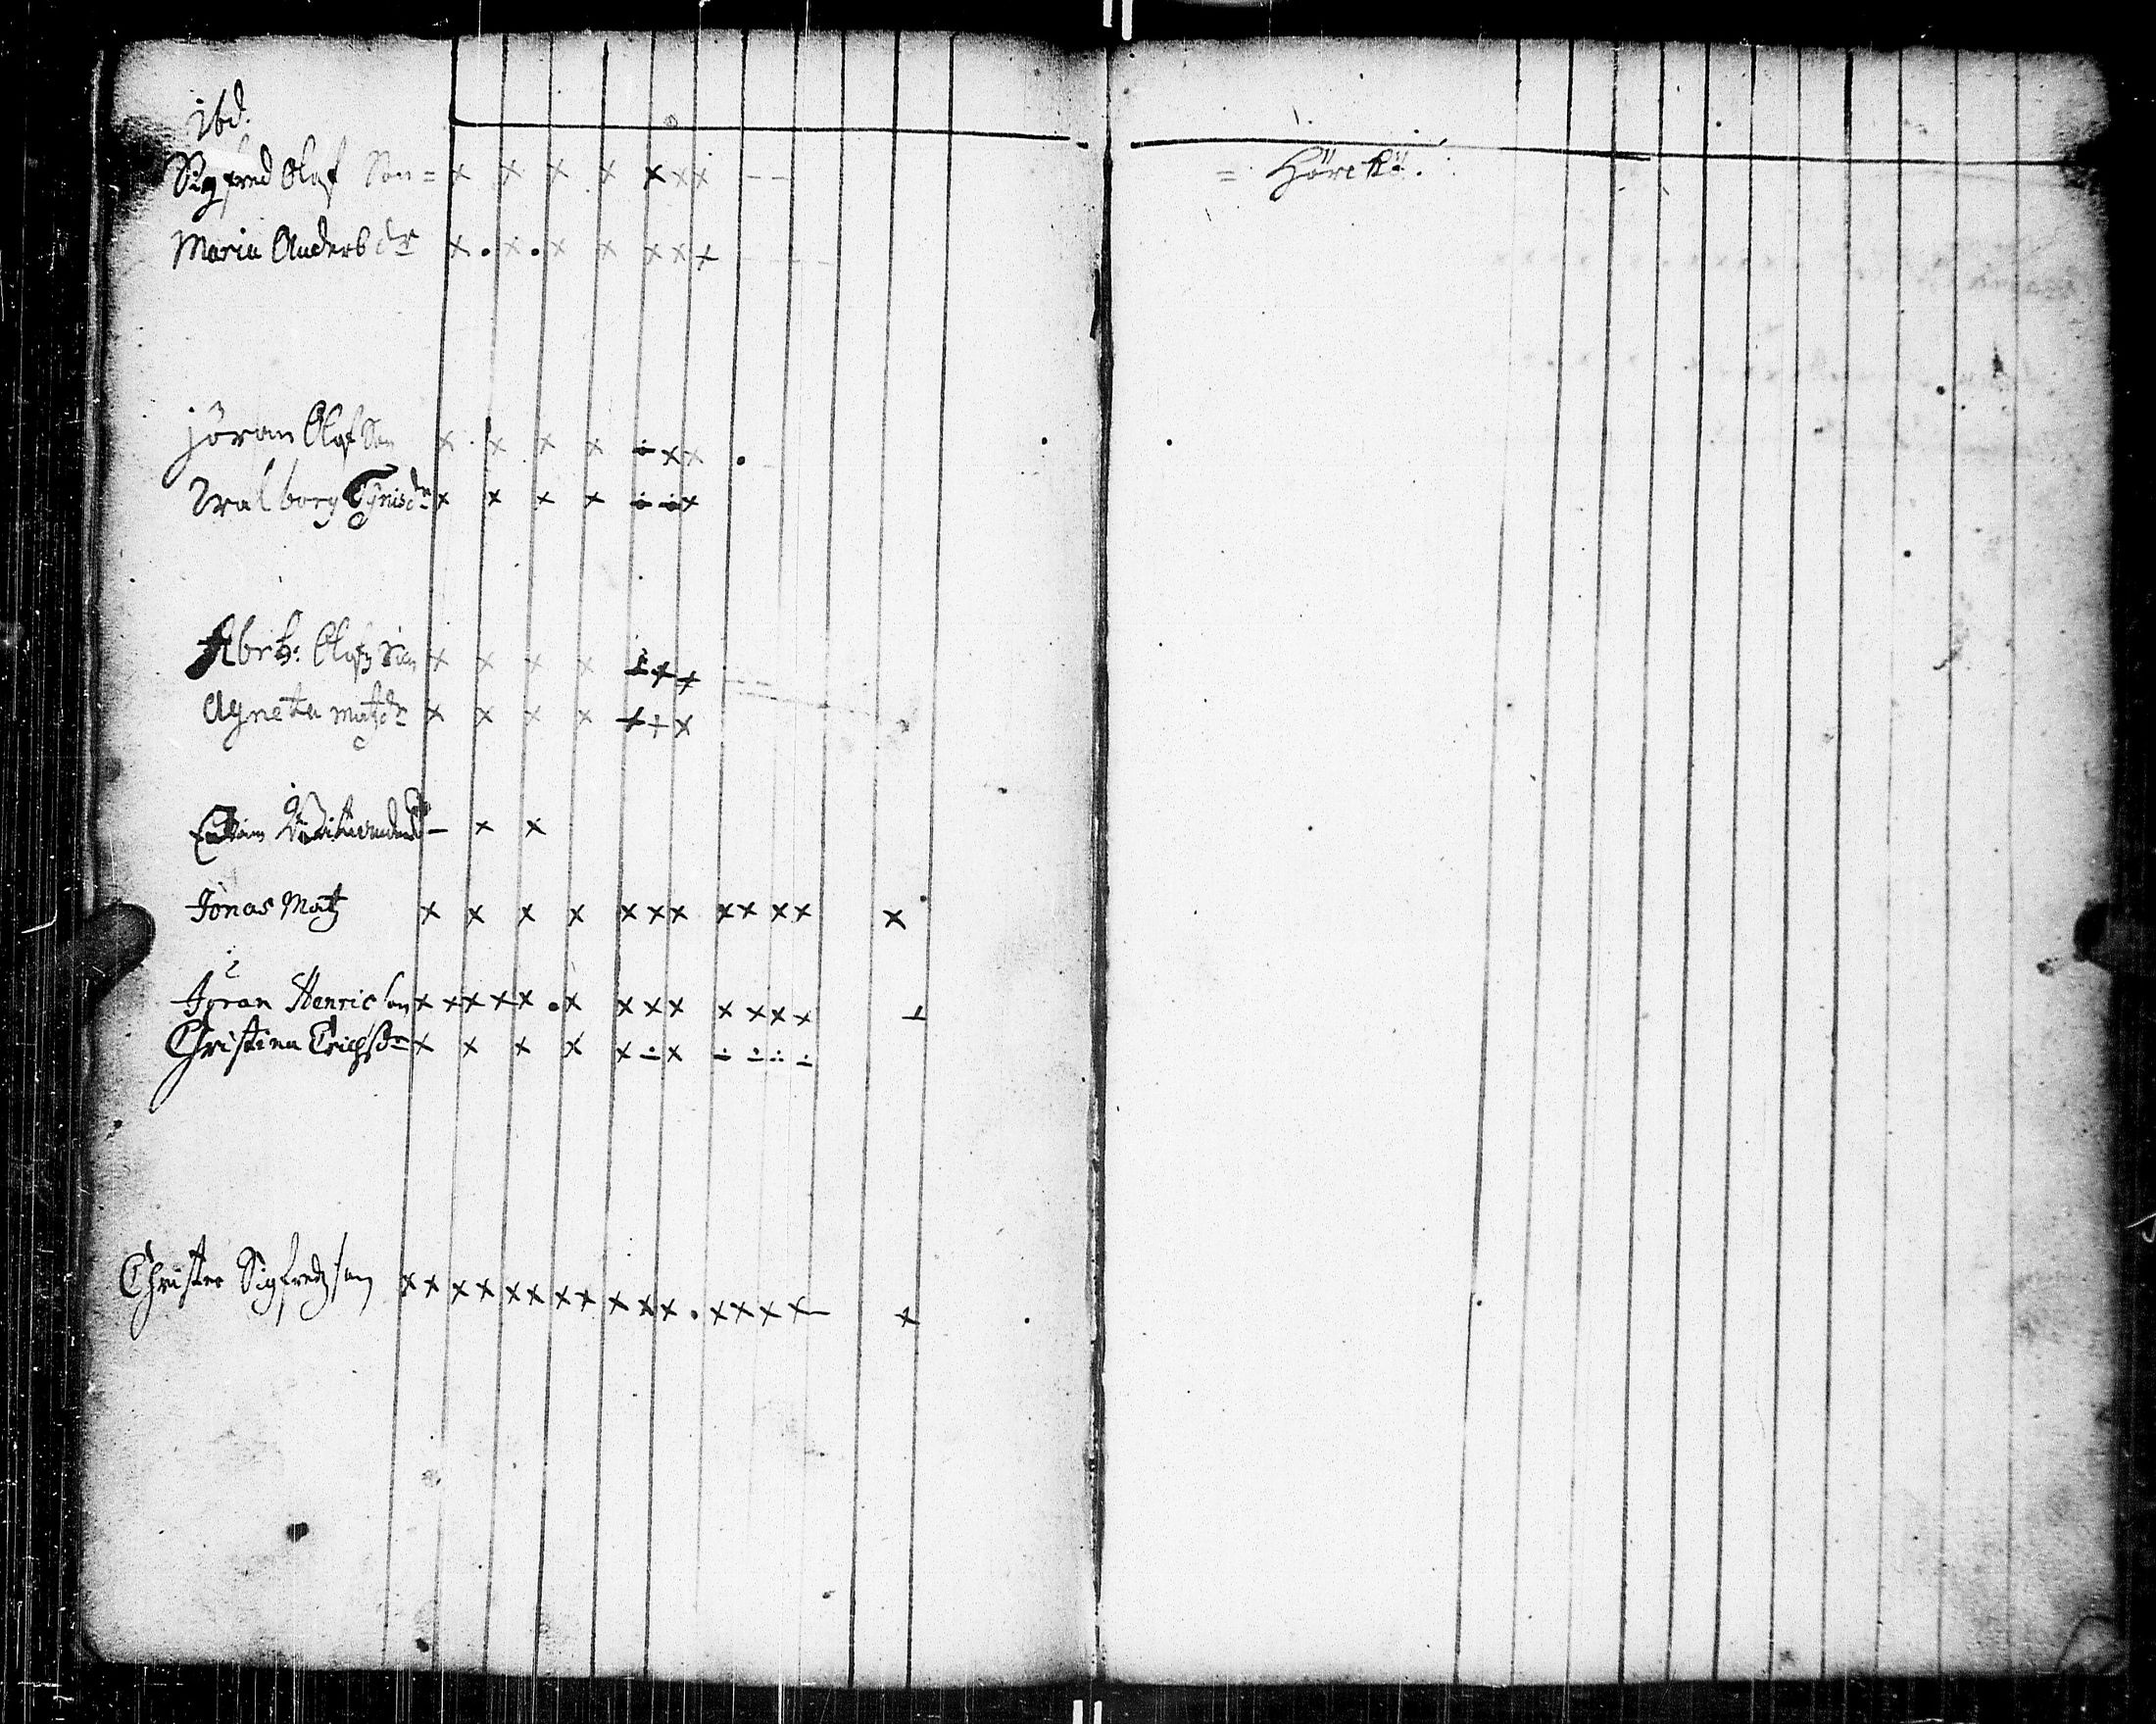 ibd.
Sigfred Olof Son = x x x x x x x - -
Maria Anders dr x . x . x x x x x
Jöran Olof Son x x x x ÷ x x .
Walborg Tÿnisdr x x x x ÷ ÷ x
Abrh: Olofz Son x x x x ÷ x x
Agneta matzdr x x x x x + x
- x x
Jonas Matz x x x x x x x x x x x x
Jöran Henricson x x x x x . x x x x x x x x
Christina Erichsdr x x x x x ÷ x ÷ ÷ ÷ ÷
Christer Sigfredzson x x x x x x x x x x x . x x x x - x
= Hörckü.